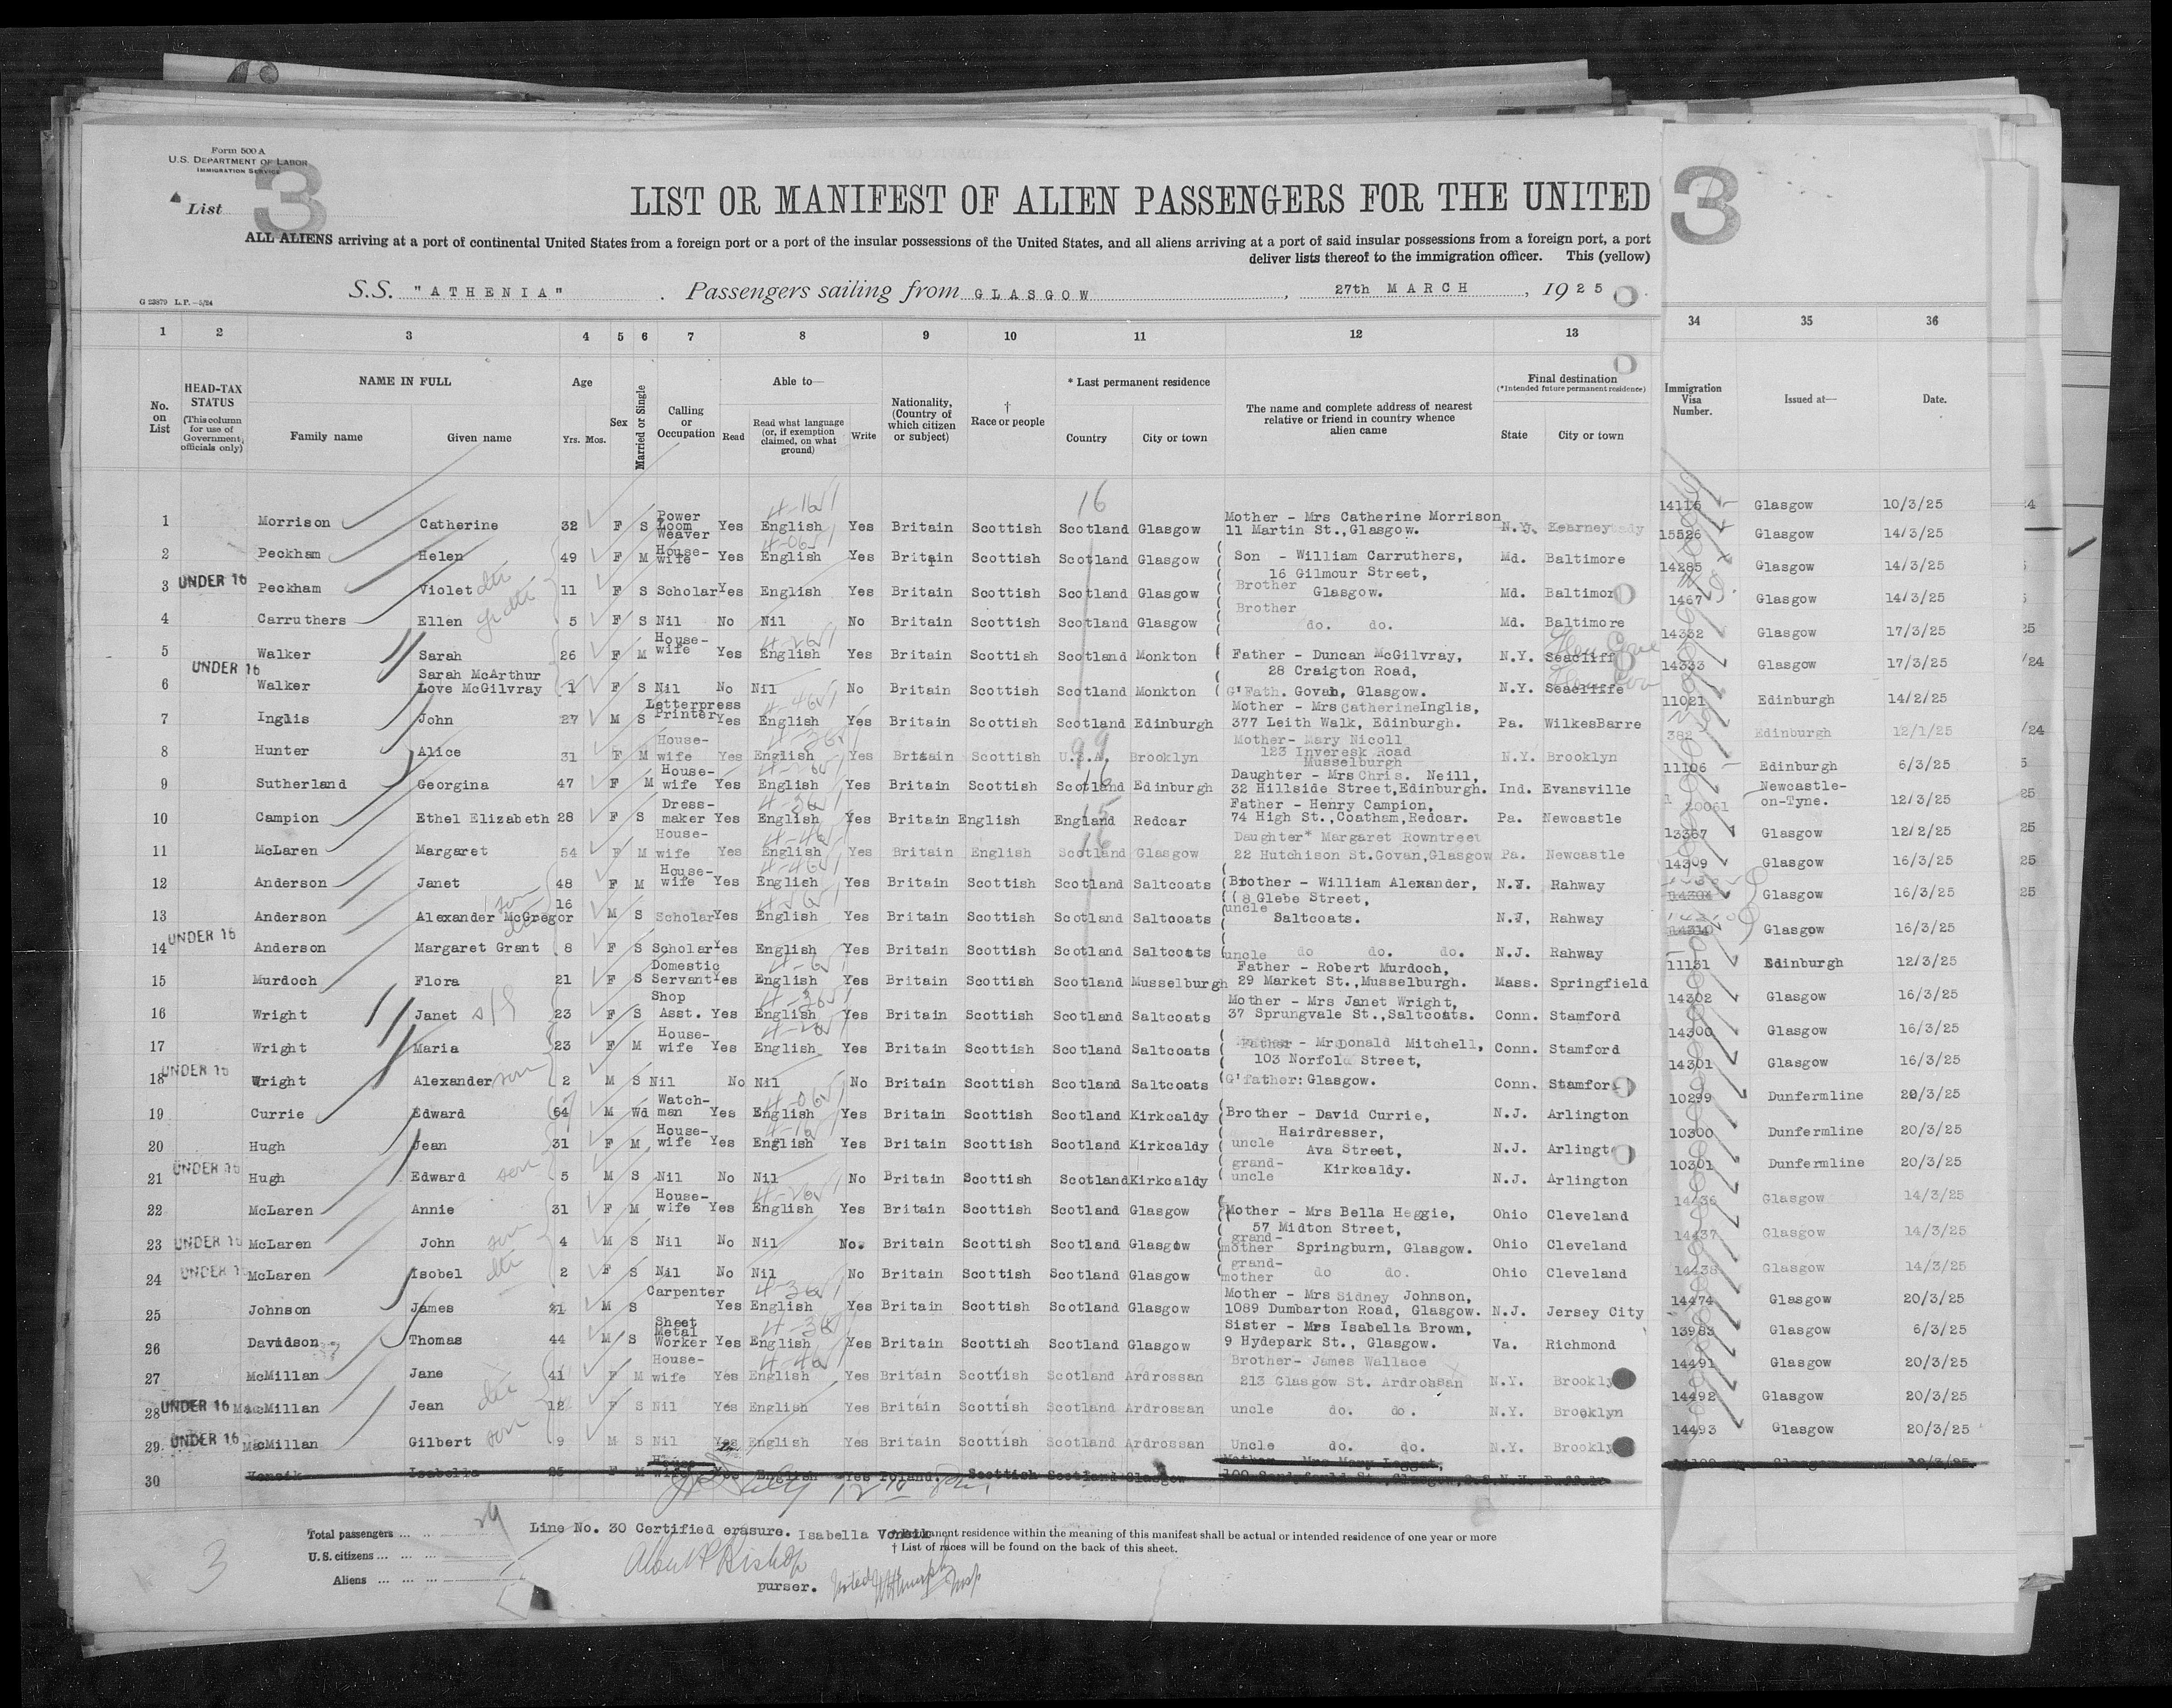 Form 500 A
U.S. DEPARTMENT OF LABOR
IMMIGRATION SERVICE
List 3
3
LIST OR MANIFEST OF ALIEN PASSENGERS FOR THE UNITED
ALL ALIENS arriving at a port of continental United States from a foreign port or a port of the insular possessions of the United States, and all aliens arriving at a port of said insular possessions from a foreign port, a port
deliver lists thereof to the immigration officer. This (yellow)
G 23879 L.P.—5/24
S.S. "ATHENIA" . Passengers sailing from GLASGOW , 27th MARCH , 1925
1 2 3 4 5 6 7 8 9 10 11 12 13 34 35 36
No. on List
HEAD-TAX STATUS (This column for use of Government officials only)
NAME IN FULL Family name Given name
Age Yrs. Mos.
Sex
Married or Single
Calling or Occupation
Able to— Read Read what language (or, if exemption claimed, on what ground) Write
Nationality, (Country of which citizen or subject)
† Race or people
* Last permanent residence Country City or town
The name and complete address of nearest relative or friend in country whence alien came
Final destination (*Intended future permanent residence) State City or town
Immigration Visa Number.
Issued at—
Date.
1 Morrison Catherine 32 F S Power Loom Weaver Yes English Yes Britain Scottish Scotland Glasgow Mother - Mrs Catherine Morrison 11 Martin St., Glasgow. Kearney 14116 Glasgow 10/3/25
2 Peckham Helen 49 F M House-wife Yes English Yes Britain Scottish Scotland Glasgow Son - William Carruthers, 16 Gilmour Street, Md. Baltimore 15526 Glasgow 14/3/25
3 UNDER 16 Peckham Violet 11 F S Scholar Yes English Yes Britain Scottish Scotland Glasgow Brother Glasgow. Md. Baltimor 14285 Glasgow 14/3/25
4 Carruthers Ellen 5 F S Nil No Nil No Britain Scottish Scotland Glasgow Brother do. do. Md. Baltimore 1467 Glasgow 14/3/25
5 Walker Sarah 26 F M House-wife Yes English Yes Britain Scottish Scotland Monkton Father - Duncan McGilvray, 28 Craigton Road, N.Y. Seacliff 14332 Glasgow 17/3/25
6 UNDER 16 Walker Sarah McArthur Love McGilvray 1 F S Nil No Nil No Britain Scottish Scotland Monkton G'Fath. Govan, Glasgow. N.Y. Seacliffe 14333 Glasgow 17/3/25
7 Inglis John 27 M S Letterpress Printer Yes English Yes Britain Scottish Scotland Edinburgh Mother - Mrs Catherine Inglis, 377 Leith Walk, Edinburgh. Pa. WilkesBarre 11021 Edinburgh 14/2/25
8 Hunter Alice 31 F M House-wife Yes English Yes Britain Scottish U.S.A. Brooklyn Mother- Mary Nicoll 123 Inveresk Road Musselburgh N.Y. Brooklyn 382 Edinburgh 12/1/25
9 Sutherland Georgina 47 F M House-wife Yes English Yes Britain Scottish Scotland Edinburgh Daughter - Mrs Chris. Neill, 32 Hillside Street, Edinburgh. Ind. Evansville 11106 Edinburgh 6/3/25
10 Campion Ethel Elizabeth 28 F S Dress-maker Yes English Yes Britain English England Redcar Father - Henry Campion, 74 High St., Coatham, Redcar. Pa. Newcastle 20061 Newcastle-on-Tyne. 12/3/25
11 McLaren Margaret 54 F M House-wife Yes English Yes Britain English Scotland Glasgow Daughter* Margaret Rowntree 22 Hutchison St. Govan, Glasgow Pa. Newcastle 13367 Glasgow 12/2/25
12 Anderson Janet 48 F M House-wife Yes English Yes Britain Scottish Scotland Saltcoats Brother - William Alexander, 8 Glebe Street, N.J. Rahway 14309 Glasgow 16/3/25
13 Anderson Alexander McGregor son 16 M S Scholar Yes English Yes Britain Scottish Scotland Saltcoats uncle Saltcoats. N.J, Rahway Glasgow 16/3/25
14 UNDER 16 Anderson Margaret Grant 8 F S Scholar Yes English Yes Britain Scottish Scotland Saltcoats uncle do do. do. N.J. Rahway 14310 Glasgow 16/3/25
15 Murdoch Flora 21 F S Domestic Servant Yes English Yes Britain Scottish Scotland Musselburgh Father - Robert Murdoch, 29 Market St., Musselburgh. Mass. Springfield 11131 Edinburgh 12/3/25
16 Wright Janet 23 F S Shop Asst. Yes English Yes Britain Scottish Scotland Saltcoats Mother - Mrs Janet Wright, 37 Sprungvale St., Saltcoats. Conn. Stamford 14302 Glasgow 16/3/25
17 Wright Maria 23 F M House-wife Yes English Yes Britain Scottish Scotland Saltcoats Father - Mr Donald Mitchell, 103 Norfold Street, Conn. Stamford 14300 Glasgow 16/3/25
18 UNDER 16 Wright Alexander son 2 M S Nil No Nil No Britain Scottish Scotland Saltcoats G'father: Glasgow. Conn. Stamford 14301 Glasgow 16/3/25
19 Currie Edward 64 M Wd Watch-man Yes English Yes Britain Scottish Scotland Kirkcaldy Brother - David Currie, Hairdresser, N.J. Arlington 10299 Dunfermline 20/3/25
20 Hugh Jean 31 F M House-wife Yes English Yes Britain Scottish Scotland Kirkcaldy uncle Ava Street, N.J. Arlingt 10300 Dunfermline 20/3/25
21 UNDER 16 Hugh Edward son 5 M S Nil No Nil No Britain Scottish Scotland Kirkcaldy grand-uncle Kirkcaldy. N.J. Arlington 10301 Dunfermline 20/3/25
22 McLaren Annie 31 F M House-wife Yes English Yes Britain Scottish Scotland Glasgow Mother - Mrs Bella Heggie, 57 Midton Street, Ohio Cleveland 14436 Glasgow 14/3/25
23 UNDER 16 McLaren John son 4 M S Nil No Nil No. Britain Scottish Scotland Glasgow grand-mother Springburn, Glasgow. Ohio Cleveland 14437 Glasgow 14/3/25
24 UNDER 1 McLaren Isobel 2 F S Nil No Nil No Britain Scottish Scotland Glasgow grand-mother do do. Ohio Cleveland 14438 Glasgow 14/3/25
25 Johnson James 21 M S Carpenter Yes English Yes Britain Scottish Scotland Glasgow Mother - Mrs Sidney Johnson, 1089 Dumbarton Road, Glasgow. N.J. Jersey City 14474 Glasgow 20/3/25
26 Davidson Thomas 44 M S Sheet Metal Worker Yes English Yes Britain Scottish Scotland Glasgow Sister - Mrs Isabella Brown, 9 Hydepark St., Glasgow. Va. Richmond 13983 Glasgow 6/3/25
27 McMillan Jane 41 F M House-wife Yes English Yes Britain Scottish Scotland Ardrossan Brother- James Wallace 213 Glasgow St. Ardrossan N.Y. Brookly 14491 Glasgow 20/3/25
28 UNDER 16 MacMillan Jean 12 F S Nil Yes English Yes Britain Scottish Scotland Ardrossan uncle do. do. N.Y. Brooklyn 14492 Glasgow 20/3/25
29. UNDER 16 MacMillan Gilbert son 9 M S Nil Yes English Yes Britain Scottish Scotland Ardrossan Uncle do. do. N.Y. Brookly 14493 Glasgow 20/3/25
30 Isabella 25 F M House-wife Yes English Yes Poland. Scottish Scotland Glasgow
Total passengers ... 29
U.S. citizens ...
Aliens ...
3
Line No. 30 Certified erasure. Isabella Voncik
Albert Bishop
purser.
permanent residence within the meaning of this manifest shall be actual or intended residence of one year or more
† List of races will be found on the back of this sheet.